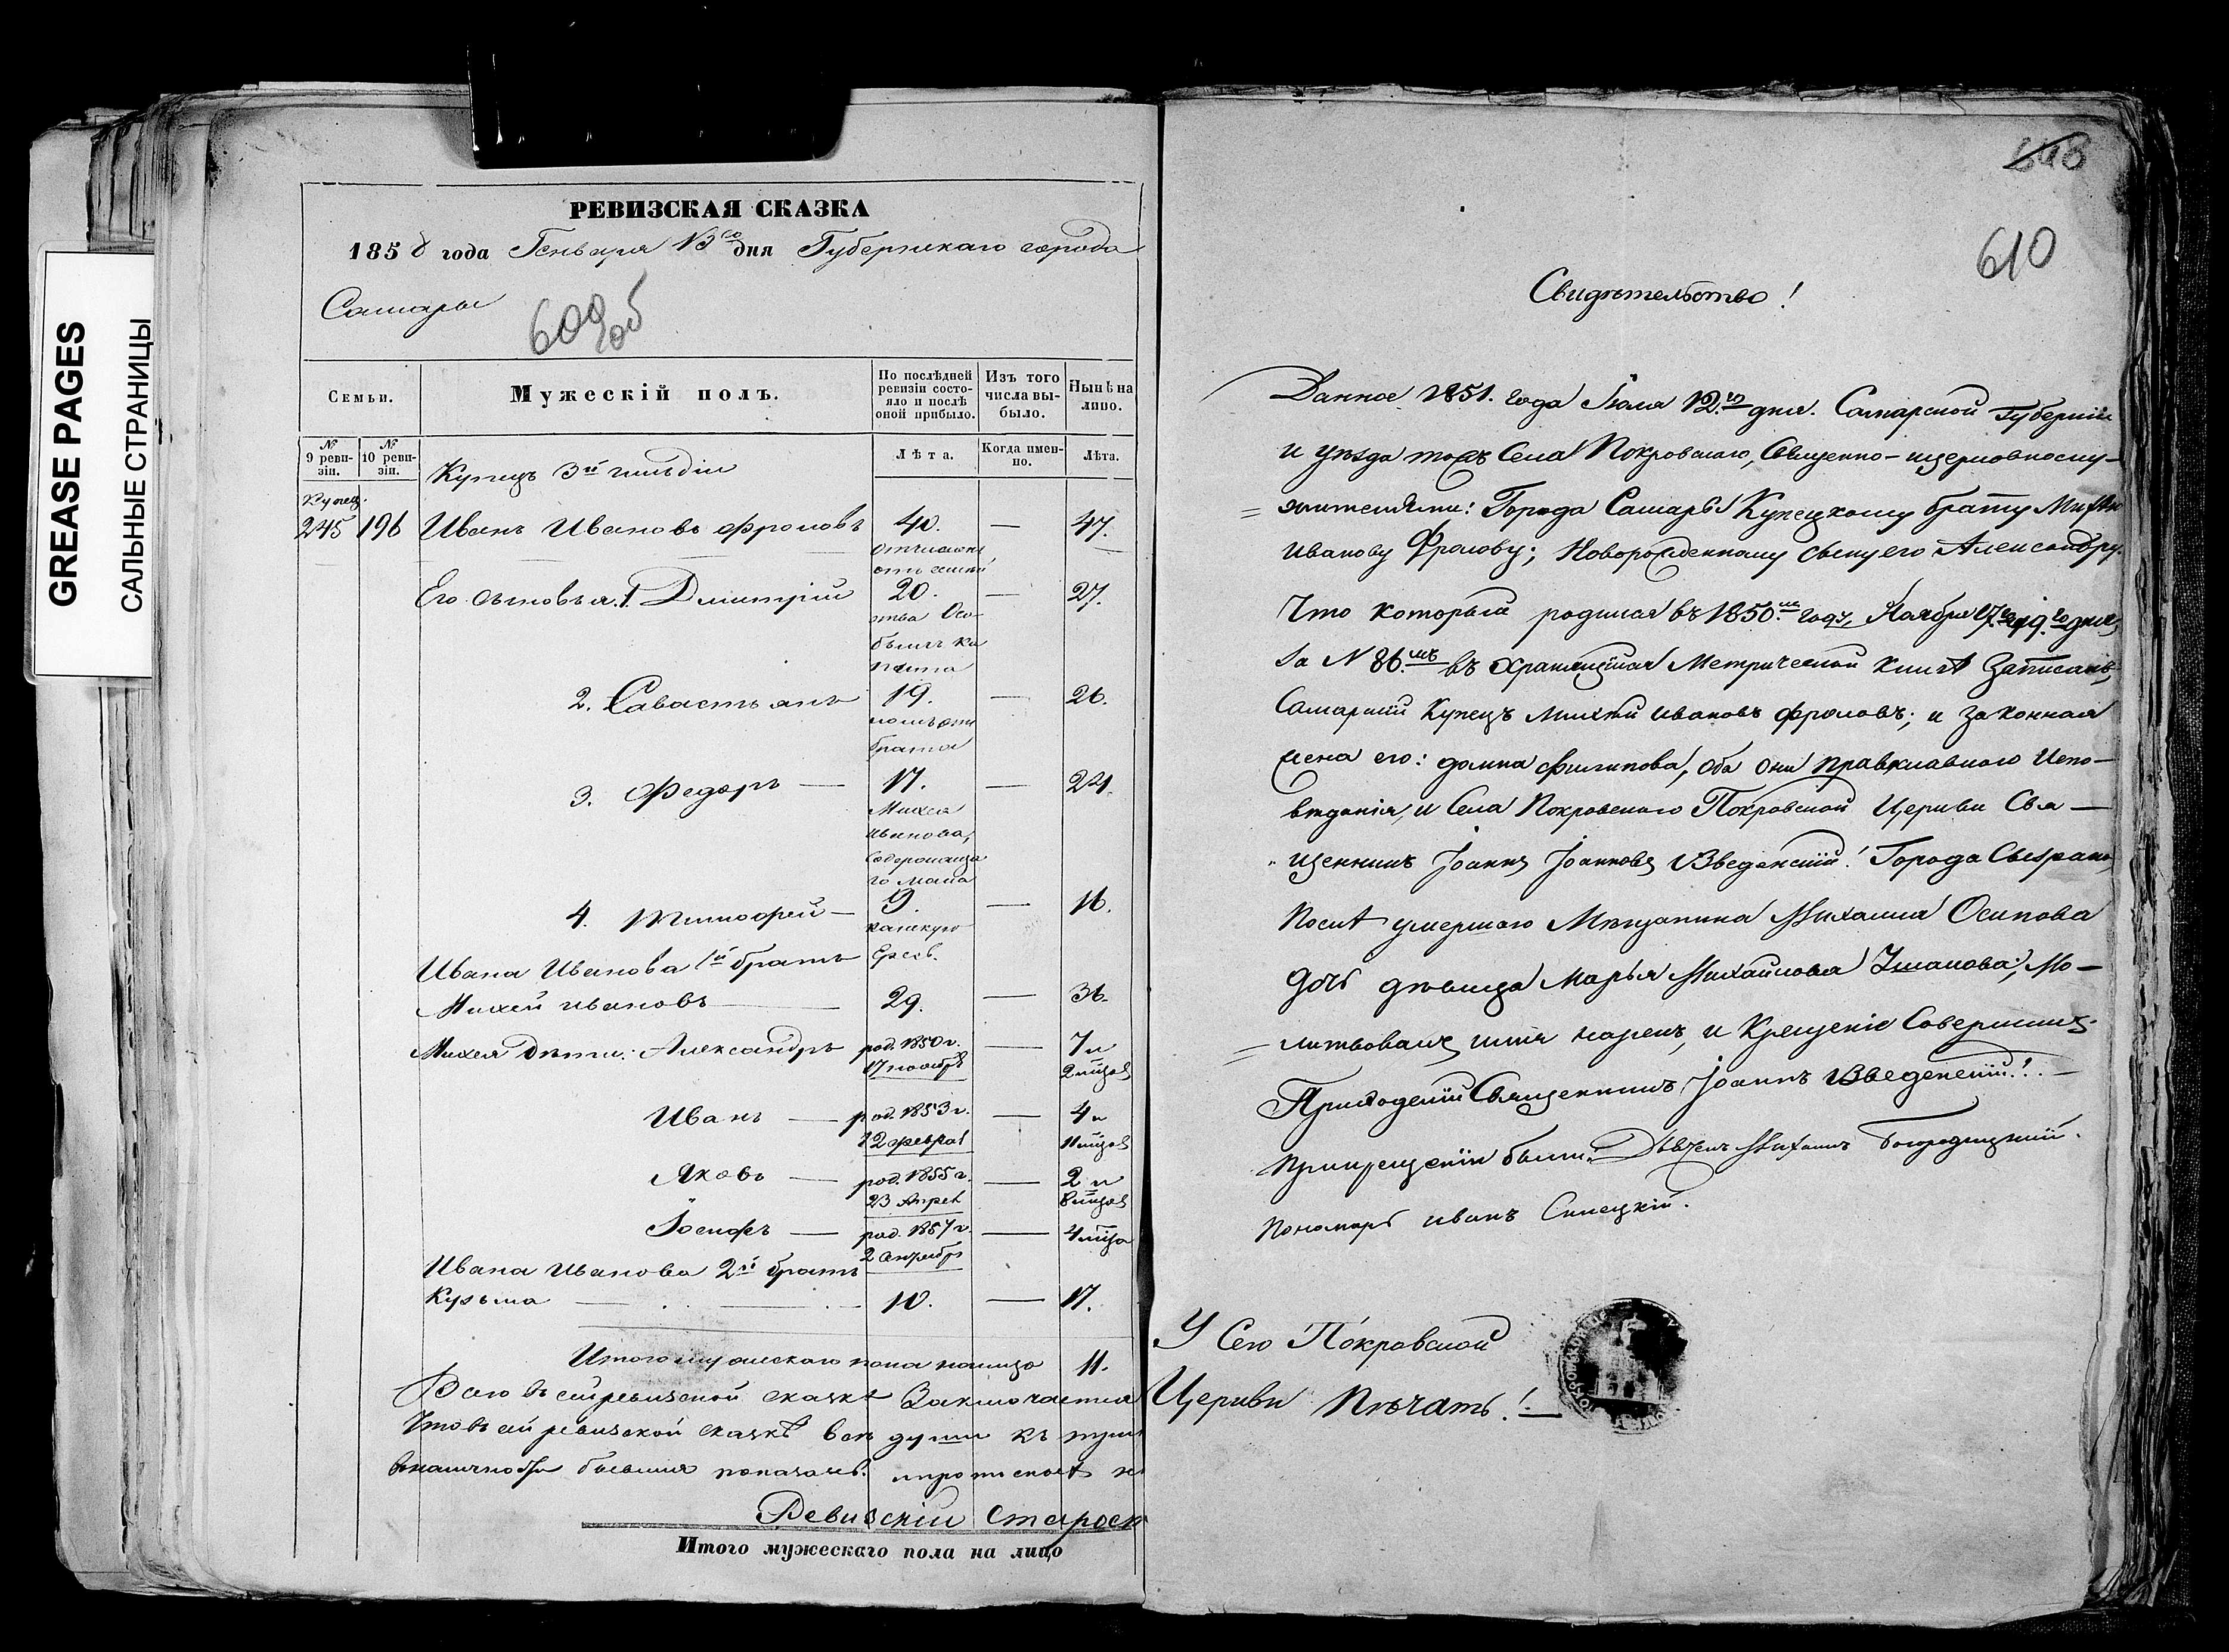 GREASE PAGES
САЛЬНЫЕ СТРАНИЦЫ
РЕВИЗСКАЯ СКАЗКА
1858 года Генваря 13го дня Губернскаго города
Самары
609об
Семьи.
Мужескій полъ.
По послѣдней ревизіи состояло и послѣ оной прибыло.
Изъ того числа выбыло.
Нынѣ на лицо.
№ 9 ревизіи.
№ 10 ревизіи.
Лѣта.
Когда именно.
Лѣта.
Купецъ 3й гильдіи
Купец.
245 196 Иванъ Ивановъ Фроловъ 40. — 47.
Его сыновья. 1. Дмитрій 20. — 27.
2. Савастьянъ 19. — 26.
брата
3. Федоръ — 17. — 24.
Михея
Иванова,
4. Тимофей — 9. — 16.
Ивана Иванова 1й братъ
Михей Ивановъ 29. — 36.
Михея дѣти: Александръ род. 1850 г. — 7 и
17 ноябр 2 мцов
Иванъ — род. 1853 г. — 4 и
12 феврал 11 мцов
Яковъ — род. 1855 г. — 2 и
23 Апрел 8 мцов
Іосифъ — род. 1857 г. — 4 мца
2 сентябр
Ивана Иванова 2й братъ
Кузьма — 10. — 17.
Итого мужескаго пола налицо 11.
Всего въ сей ревизской сказкѣ Заключается
Что въ сей ревизской сказкѣ всѣ души къ
показаны.
Ревизскій Старос
Итого мужескаго пола на лицо
610
Свидѣтельство!
Данное 1851. года Іюля 12.го дня. Самарской Губерніи
и уѣзда тожъ Села Покровскаго, Священно-церковнослу-
=жителями: Города Самары Купецкому брату Михѣю
Иванову Фролову; Новорожденному сыну его Александру.
Что который родился въ 1850.мъ году, Ноября 17.го и 19.го дня,
За N 86.мъ въ хранящейся Метрической книгѣ Записанъ,
Самарскій Купецъ Михей Ивановъ Фроловъ; и законная
жена его: Домна Филипова, оба они православнаго Испо-
вѣданія, и Села Покровскаго Покровской Церкви Свя-
щенникъ Іоаннъ Іоанновъ Введенскій! Города Сызрани,
Послѣ умершаго Мѣщанина Михаила Осипова
дочь дѣвица Марья Михайлова; Мо-
=литвовалъ, имя нарекъ, и Крещеніе Совершилъ
Приходскій Священникъ Іоаннъ Введенскій!.—
При крещеніи были: Дьячекъ Михаилъ Богородицкій.
Пономарь Иванъ Синецкій.
У Сего Покровской
Церкви Печать!—